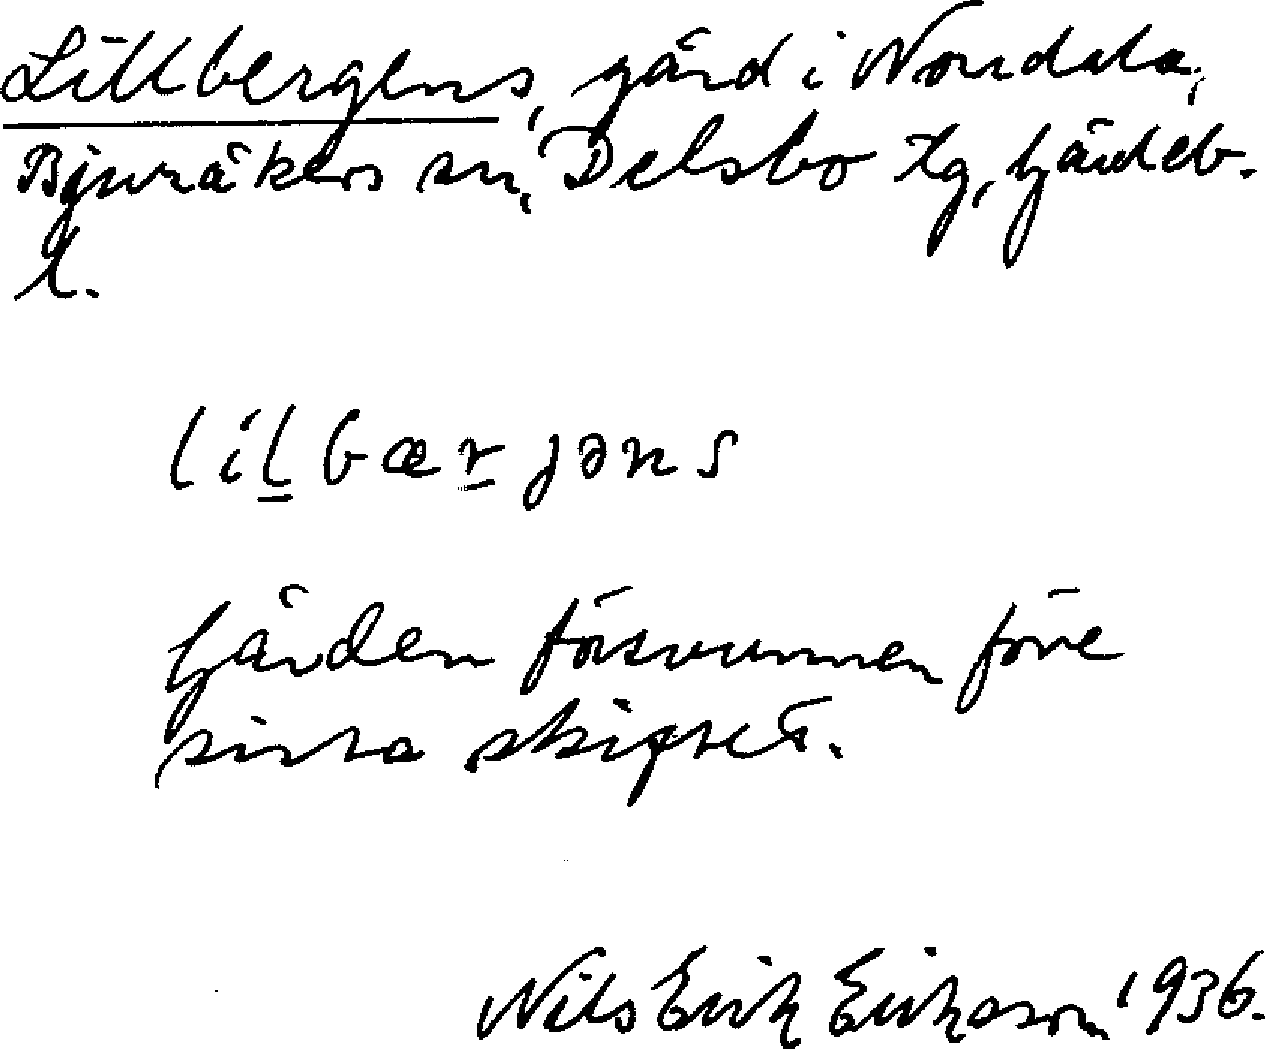 Lillbergens, gård i Norrdala,
Bjuråkers sn, Delsbo tg, Gävleb.
l.
lilbærjəns
Gården försvunnen före
sista skiftet.
Nils Erik Erikson 1936.